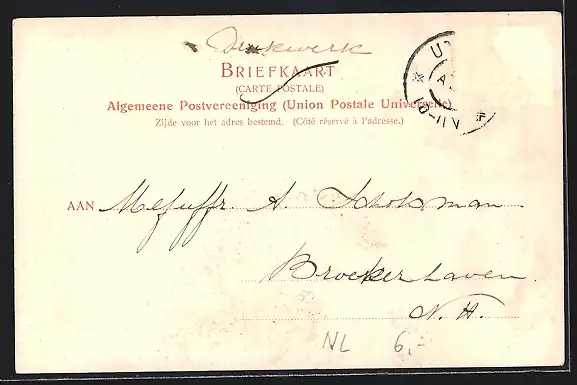 Drukwerk
BRIEFKAART
(CARTE POSTALE)
Algemeene Postvereeniging (Union Postale Universelle)
Zijde voor het adres bestemd. (Côté réservé à l'adresse.)
AAN Mejuffr. A. Scholsman
Broekerhaven.
N. H.
NL 6,-